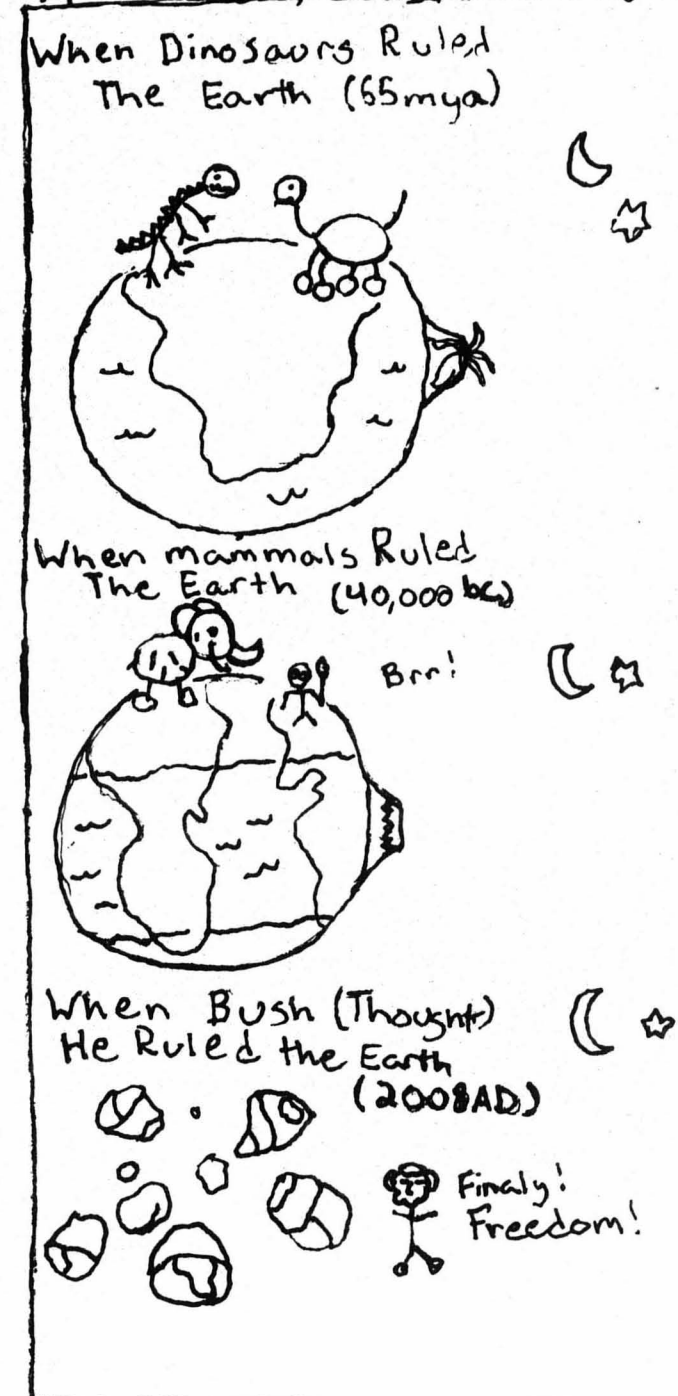 When Dinosaurs Ruled
The Earth (65mya)
When mammals Ruled
The Earth (40,000 bc)
Brr!
When Bush (Thought)
He Ruled the Earth
(2008AD)
Finaly!
Freedom!